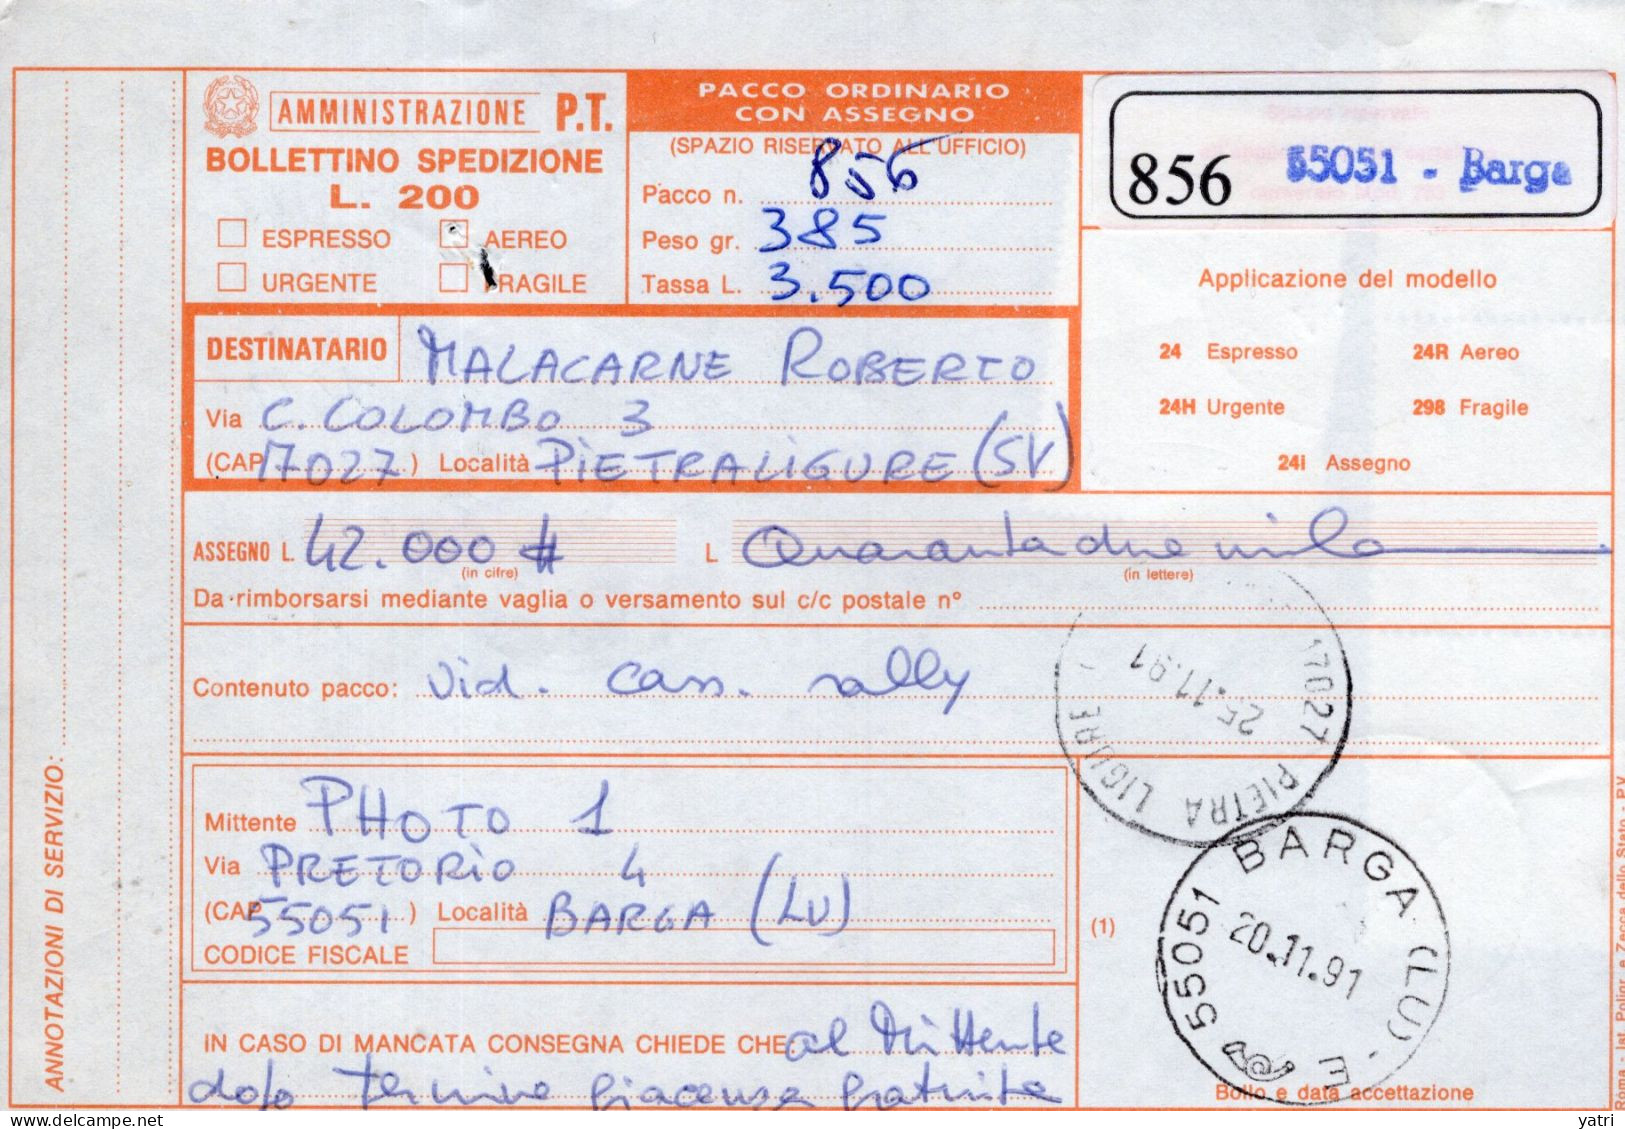 AMMINISTRAZIONE P.T.
BOLLETTINO SPEDIZIONE
L. 200
ESPRESSO AEREO
URGENTE FRAGILE
PACCO ORDINARIO
CON ASSEGNO
(SPAZIO RISERVATO ALL'UFFICIO)
Pacco n. 856
Peso gr. 385
Tassa L. 3.500
856 55051 - Barga
Applicazione del modello
24 Espresso 24R Aereo
24H Urgente 298 Fragile
24i Assegno
DESTINATARIO MALACARNE ROBERTO
Via C. COLOMBO 3
(CAP 17027) Località PIETRALIGURE (SV)
ASSEGNO L. 42.000 # L Quarantaduemila
(in cifre) (in lettere)
Da rimborsarsi mediante vaglia o versamento sul c/c postale n°
Contenuto pacco: vid. cass. rally
17027 PIETRA LIGURE
25.11.91
Mittente PHOTO 1
Via PRETORIO 4
(CAP 55051) Località BARGA (LU)
CODICE FISCALE
(1)
55051 BARGA (LU) - E
20.11.91
IN CASO DI MANCATA CONSEGNA CHIEDE CHE: al Mittente
dopo termine giacenza gratuita
Bollo e data accettazione
ANNOTAZIONI DI SERVIZIO:
Roma - Ist. Poligr. e Zecca dello Stato - P.V.
yatri